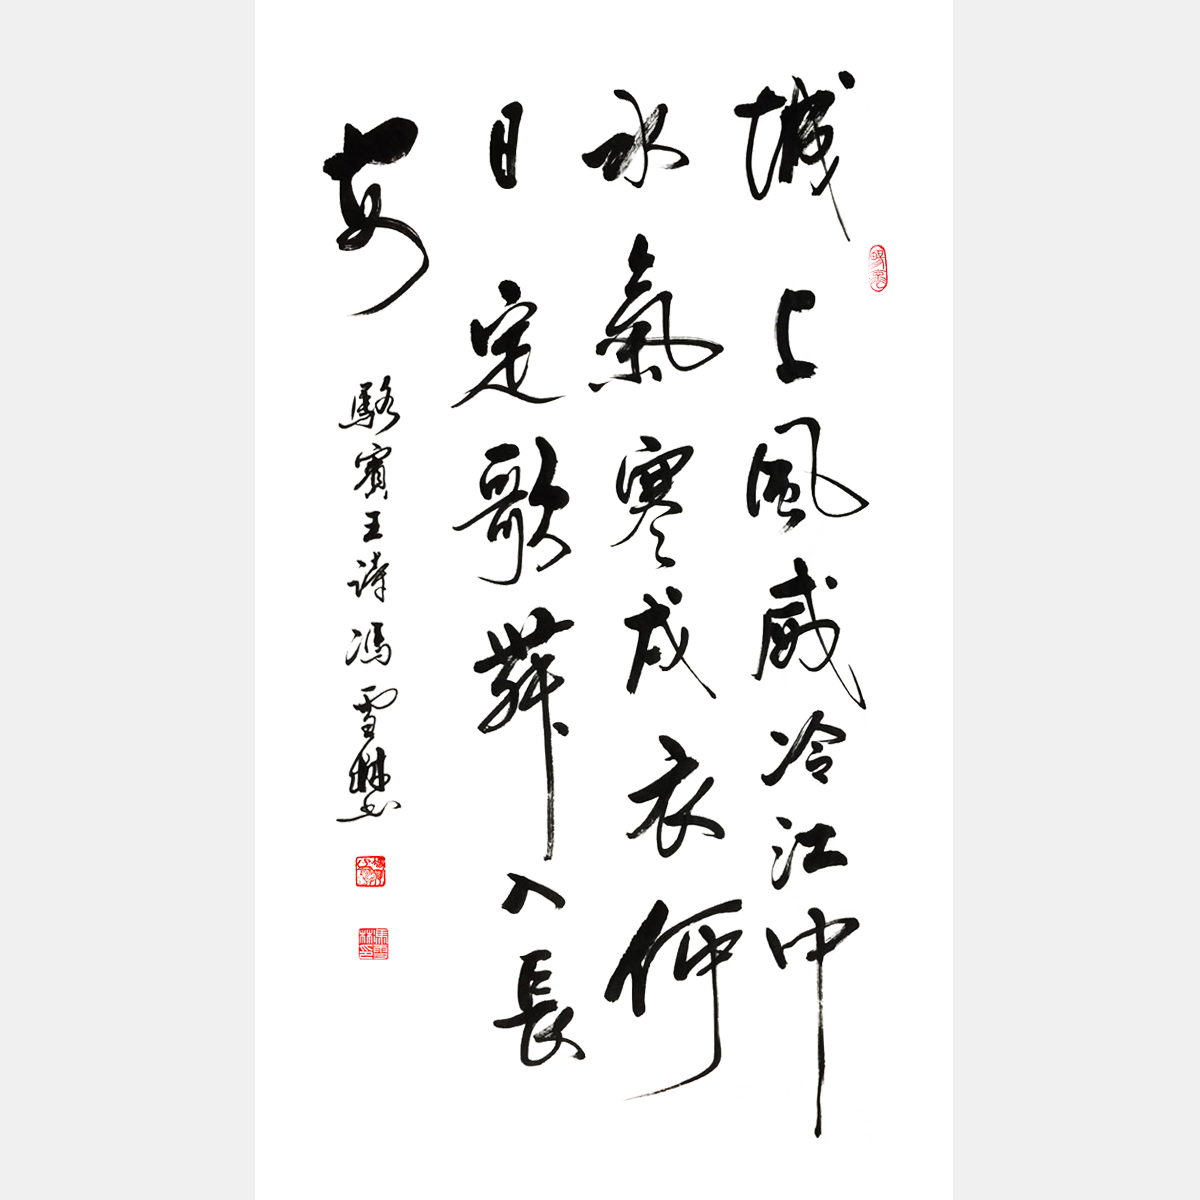 城上風威冷江中
水氣寒戎衣何
日定歌舞入長
安
駱賓王詩馮雪林書